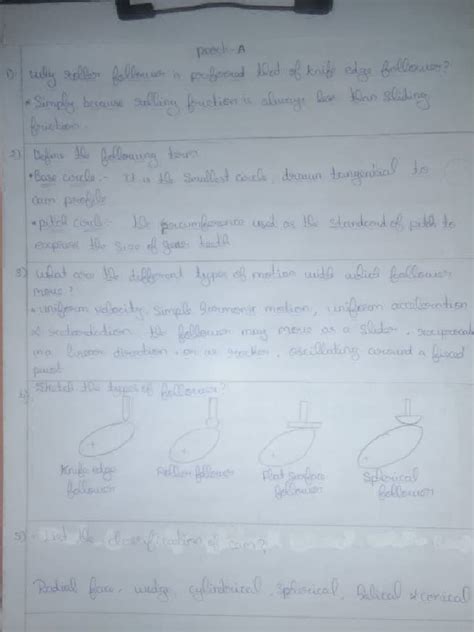 Part-A
1) Why roller follower is preferred that of knife edge follower?
• Simply because rolling friction is always less than sliding
friction.
2) Define the following term
• Base circle:- It is the smallest circle, drawn tangential to
cam profile
• pitch circle:- the circumference used as the standard of pitch to
express the size of gear teeth
3) What are the different types of motion with which follower
move?
• uniform velocity, simple harmonic motion, uniform acceleration
& retardation. the follower may move as a slider, reciprocate
in a linear direction, or as rocker, oscillating around a fixed
pivot
4) Sketch the types of follower?
Knife edge
follower
Roller follower
Flat surface
follower
Spherical
follower
5) List the classification of cam?
Radial face, wedge, cylindrical, spherical, Helical & conical